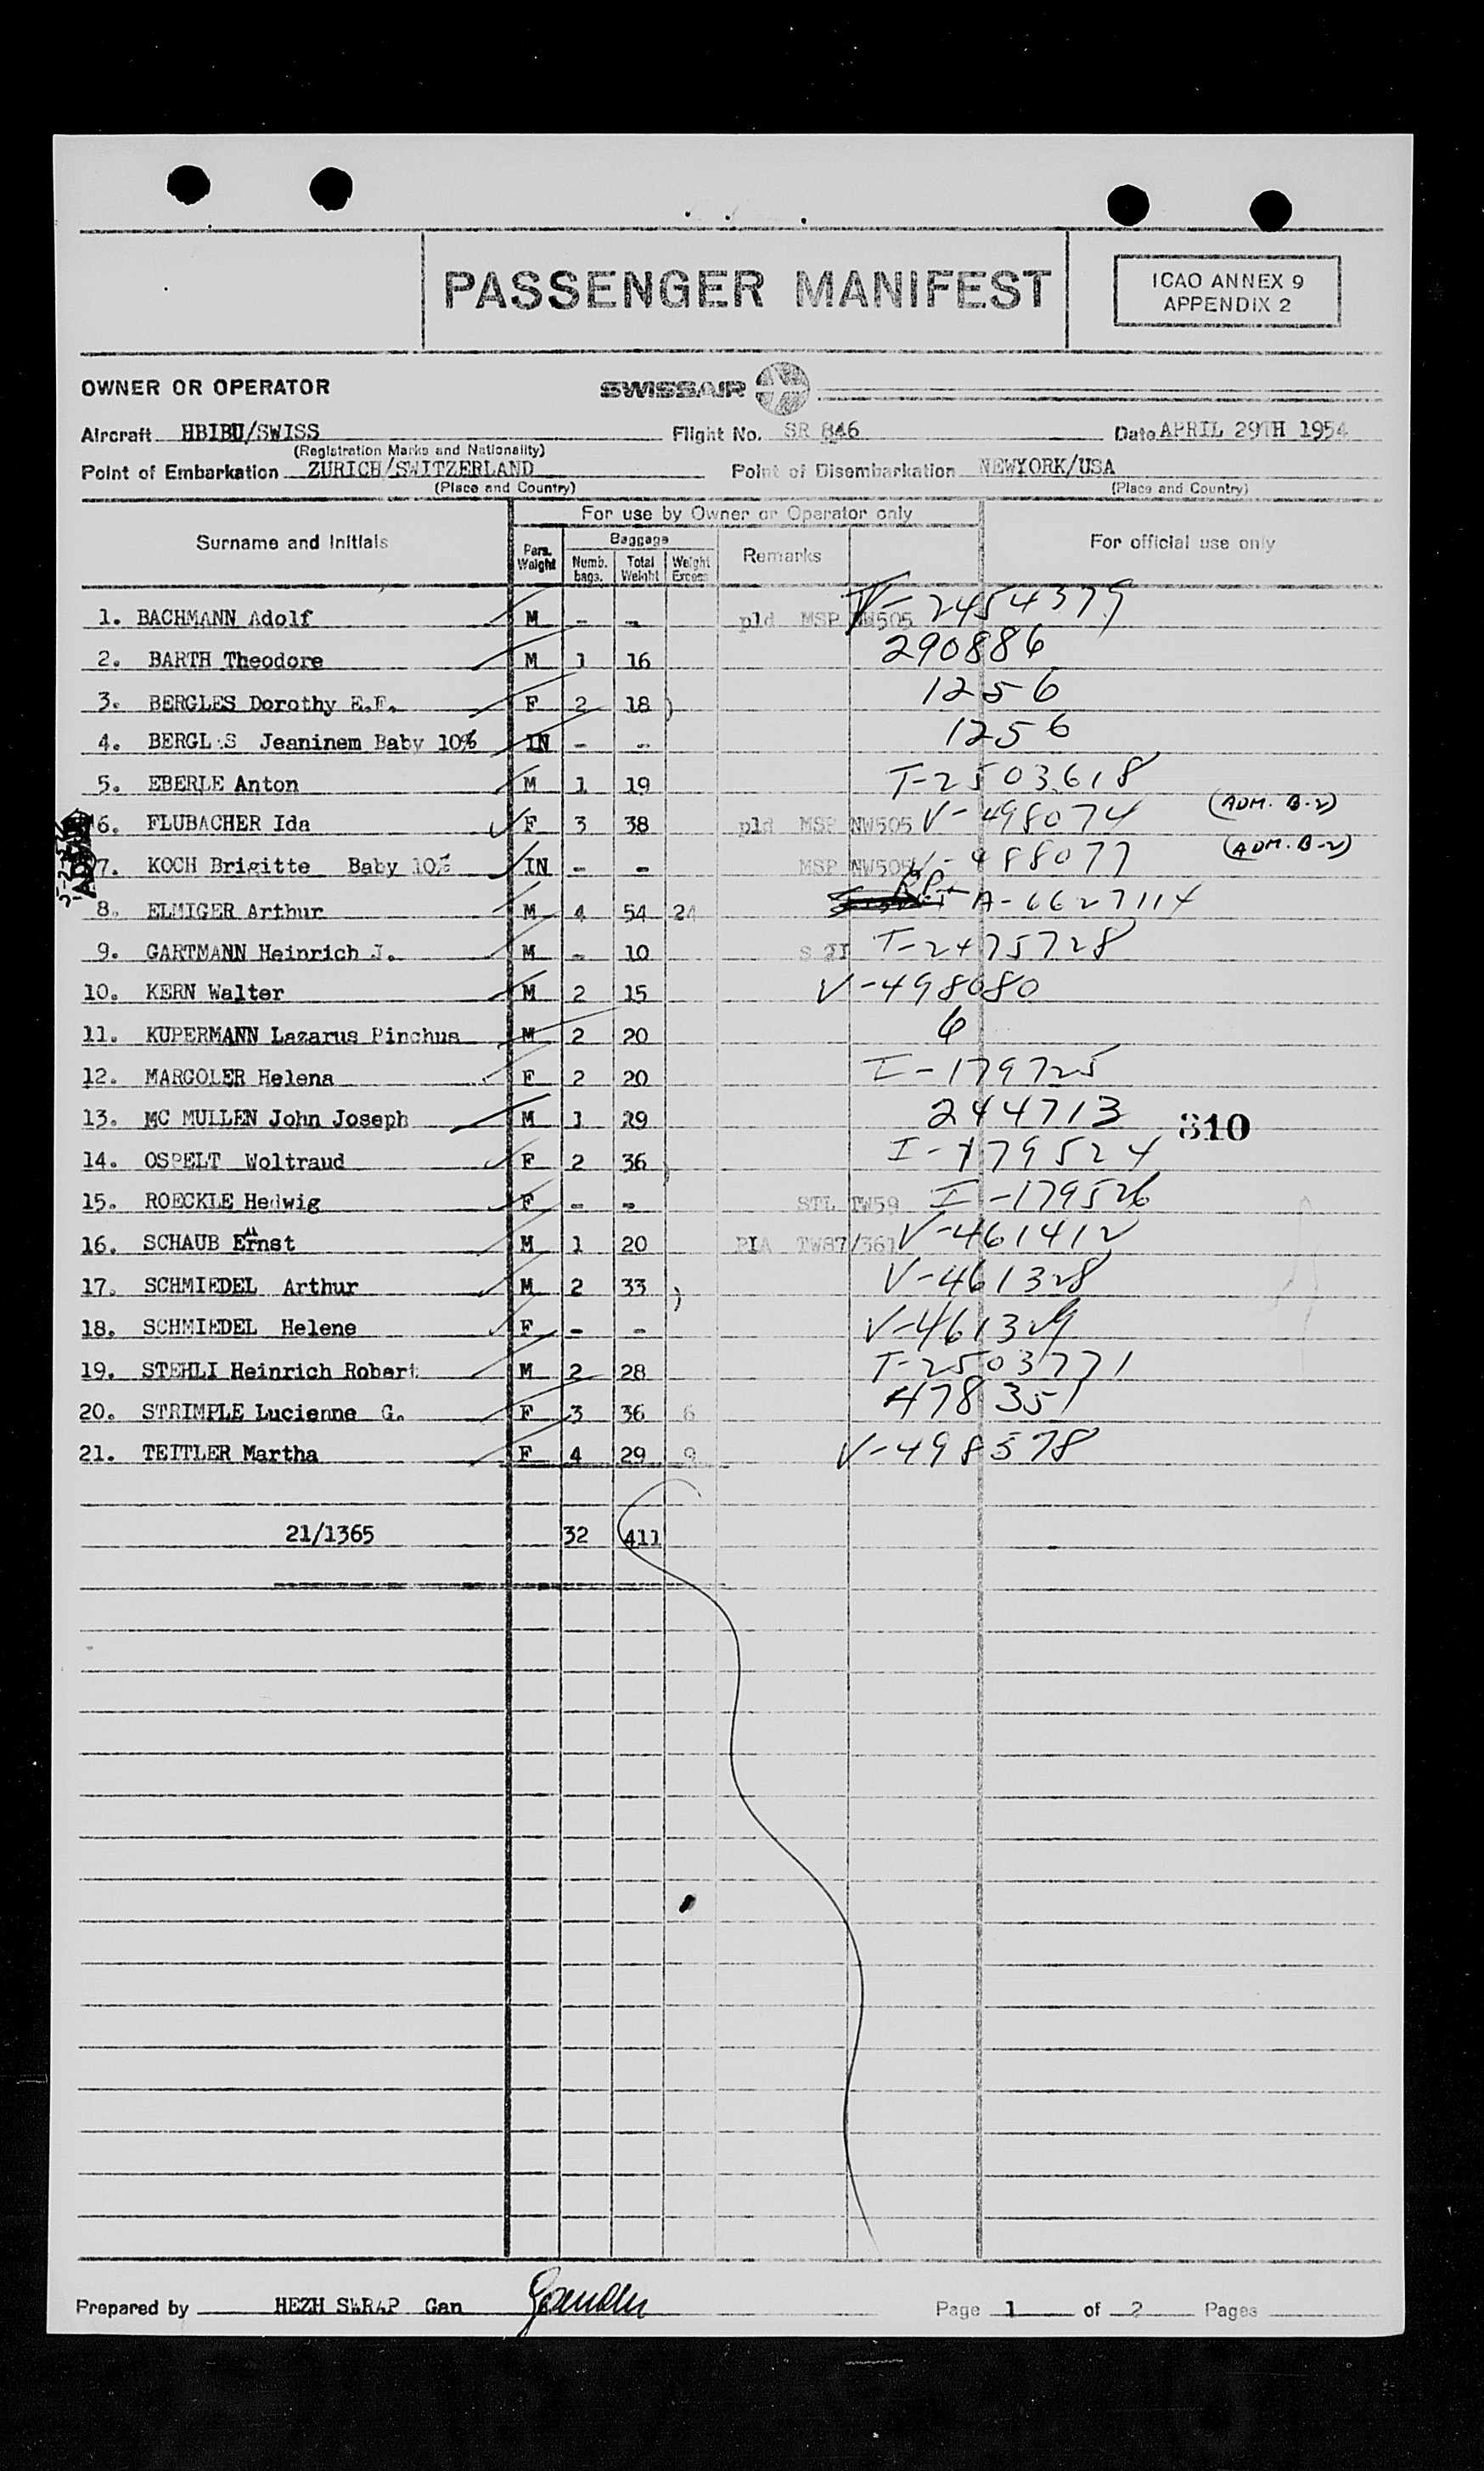 PASSENGER MANIFEST
ICAO ANNEX 9
APPENDIX 2
OWNER OR OPERATOR SWISSAIR
Aircraft HBIBU/SWISS Flight No. SR 846 Date APRIL 29TH 1954
(Registration Marks and Nationality)
Point of Embarkation ZURICH/SWITZERLAND Point of Disembarkation NEWYORK/USA
(Place and Country) (Place and Country)
For use by Owner or Operator only
Surname and Initials Pers. Weight Baggage Numb. bags. Total Weight Weight Excess Remarks For official use only
1. BACHMANN Adolf M - - pld MSP NW505 V-2454379
2. BARTH Theodore M 1 16 290886
3. BERGLES Dorothy E.F. F 2 18 ) 1256
4. BERGL S Jeaninem Baby 10% IN - - 1256
5. EBERLE Anton M 1 19 T-2503618
6. FLUBACHER Ida F 3 38 pld MSP NW505 V-498074 (ADM. B-2)
7. KOCH Brigitte Baby 10% IN - - MSP NW505 V-498077 (ADM. B-2)
8. ELMIGER Arthur M 4 54 24 A-6627114
9. GARTMANN Heinrich J. M - 10 T-2475728
10. KERN Walter M 2 15 V-498080
11. KUPERMANN Lazarus Pinchus M 2 20 6
12. MARGOLER Helena F 2 20 I-179725
13. MC MULLEN John Joseph M 1 29 244713 310
14. OSPELT Woltraud F 2 36 ) I-179524
15. ROECKLE Hedwig F - - STL TW59 I-179526
16. SCHAUB Ernst M 1 20 PIA TW87/361 V-461412
17. SCHMIEDEL Arthur M 2 33 ) V-461328
18. SCHMIEDEL Helene F - - V-461329
19. STEHLI Heinrich Robert M 2 28 T-2503771
20. STRIMPLE Lucienne G. F 3 36 6 478351
21. TEITLER Martha F 4 29 9 V-498578
21/1365 32 411
Prepared by HEZH SWRAP Gan Page 1 of 2 Pages